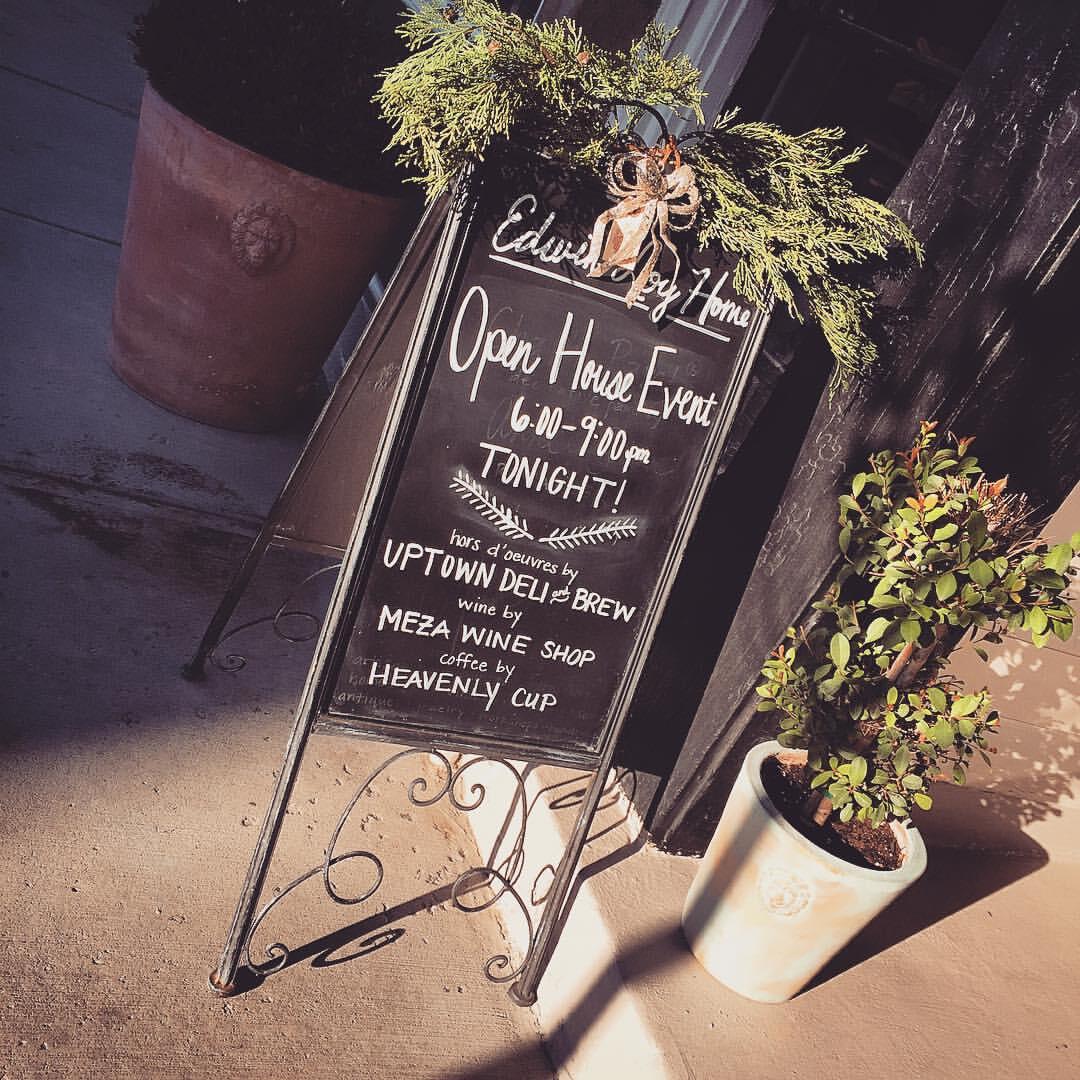 Edwin Loy Home
Open House Event
6:00-9:00pm
TONIGHT!
hors d'oeuvres by
UPTOWN DELI and BREW
wine by
MEZA WINE SHOP
coffee by
HEAVENLY CUP
antique